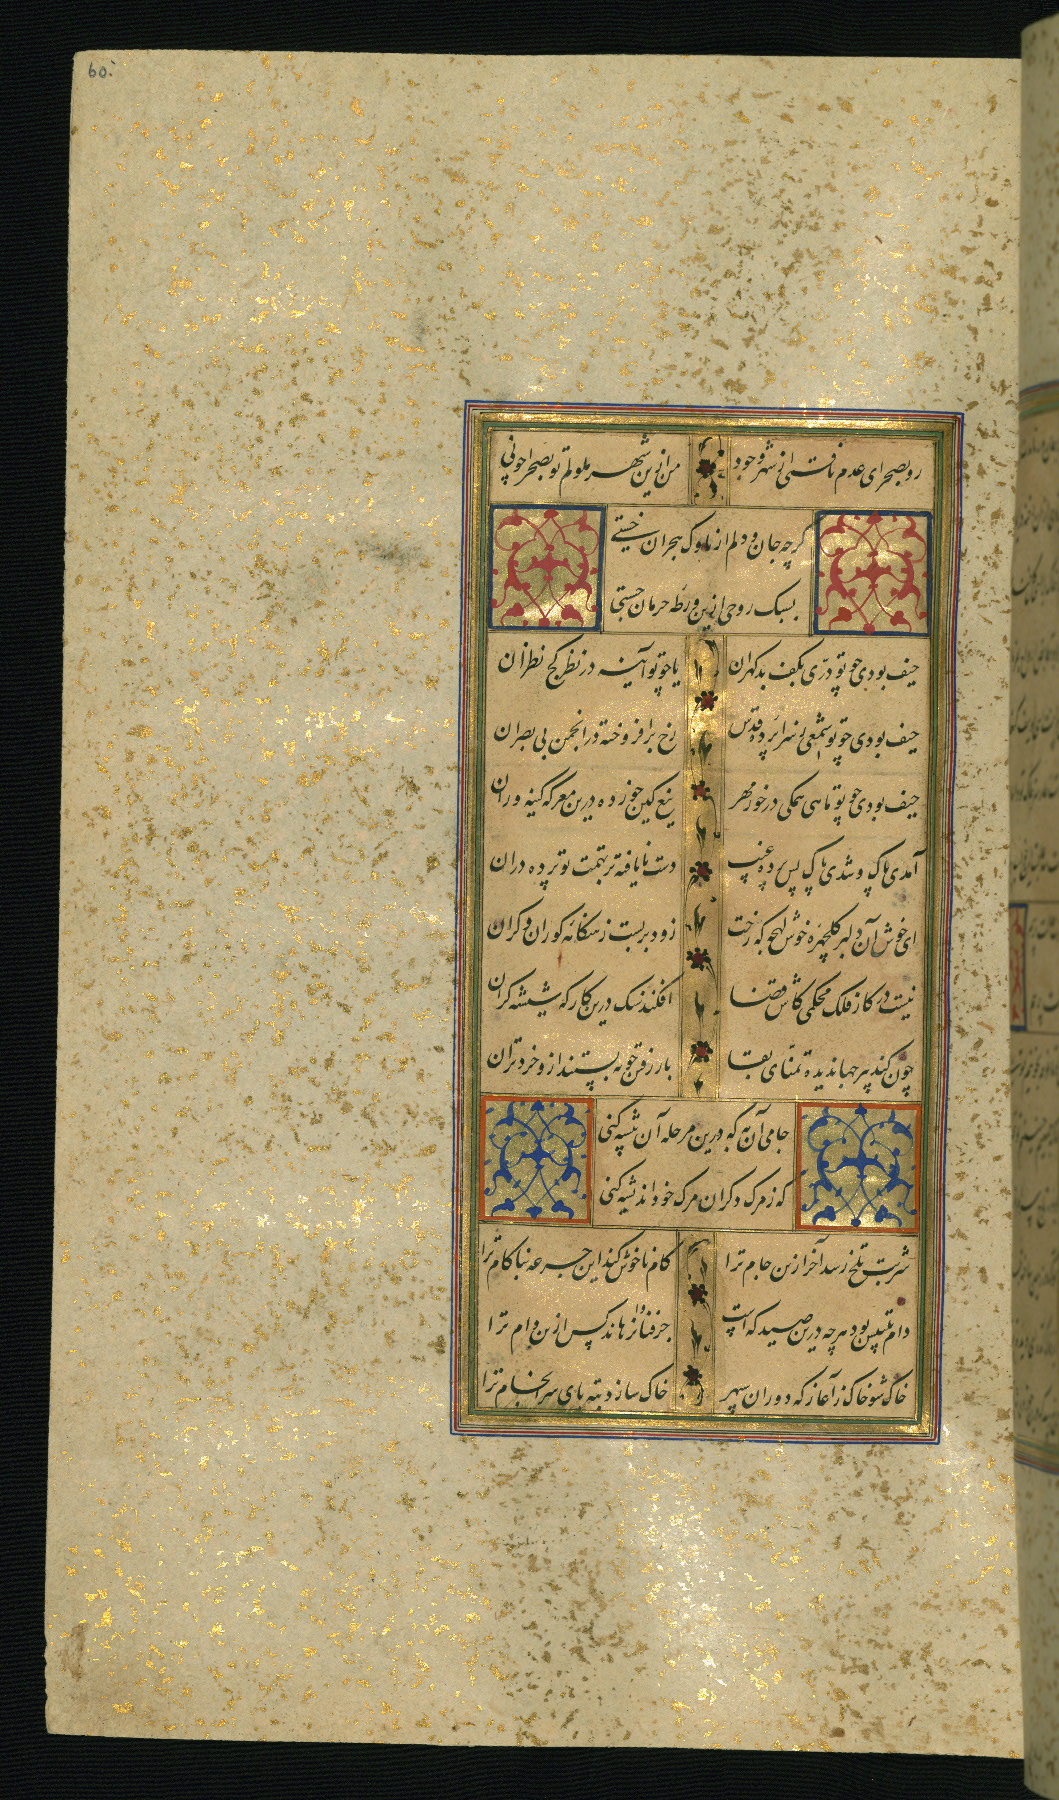 60.
رو بصحرای عدم تافتی از شهر وجود من ازین شهر ملولم تو بصحرا چونی
گرچه جان و دلم از ناوک هجران خستی
بسبک روحی ازین ورطه حرمان جستی
حیف بودی چو تو درّی بکف بدگهران یا چو تو آینه در نظر کج نظران
حیف بودی چو تو شمعی ز سراپرده قدس رخ برافروخته در انجمن بی بصران
حیف بودی چو تو ماهی همگی درخور مهر تیغ کین خورده درین معرکه کینه وران
آمدی پاک و شدی پاک پس پرده غیب دست نایافته بر تهمت تو پرده دران
ای خوش آن دلبر گلچهره خوش لهجه که رخت زود بربست ز هنگامه کوران و کران
نیست در کار فلک محکمی کاش قضا افکند سنگ درین کارگه شیشه گران
چون کند پیر جهاندیده تمنّای بقا بار رفتن چو به بستند ازو خردتران
جامی آن به که درین مرحله آن پیشه کنی
که ز مرگ دگران مرگ خود اندیشه کنی
شربت تلخ رسد آخر ازین جام ترا کام ناخوش کند این جرعه بناکام ترا
دام تلبیس بود هرچه درین صیدگه است جز فنا وا نرهاند کس ازین دام ترا
خاک شو خاک ز آغاز که دوران سپهر خاک سازد بته پای سرانجام ترا